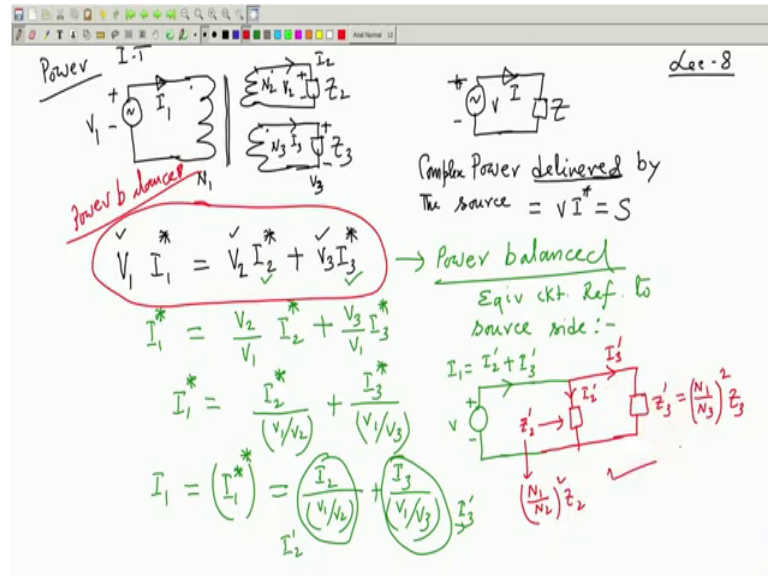 Arial Normal 12
Lec-8
Power I.T
V₁ + - I₁ N₁
N₂ V₂ + - I₂ Z₂
N₃ I₃ + - Z₃ V₃
+ - V I Z
Complex Power delivered by
The source = VI* = S
Power balanced
V₁ I₁* = V₂I₂* + V₃I₃* → Power balanced
Equiv ckt. Ref. to
source side:-
I₁* = V₂/V₁ I₂* + V₃/V₁ I₃*
I₁* = I₂*/(V₁/V₂) + I₃*/(V₁/V₃)
I₁ = (I₁*)* = I₂/(V₁/V₂) + I₃/(V₁/V₃)
I₂' I₃'
I₁ = I₂' + I₃' I₃'
V + - I₂' Z₂' → Z₃' = (N₁/N₃)² Z₃
(N₁/N₂)² Z₂